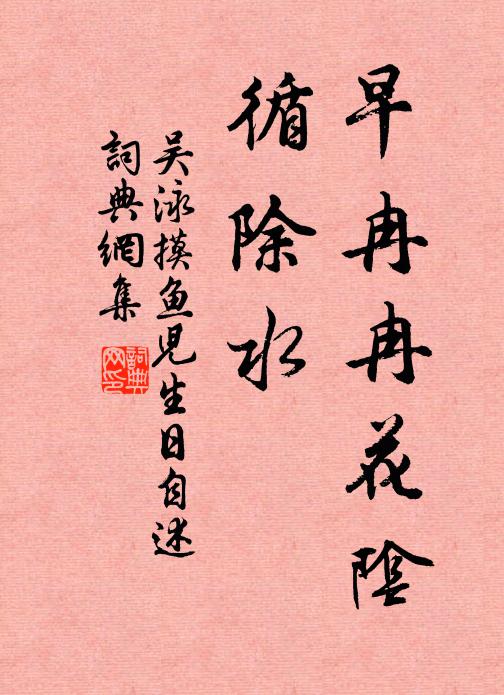 早冉冉花陰
循除水
吴泳摸鱼児生日自述
詞典網集
詞典
网印